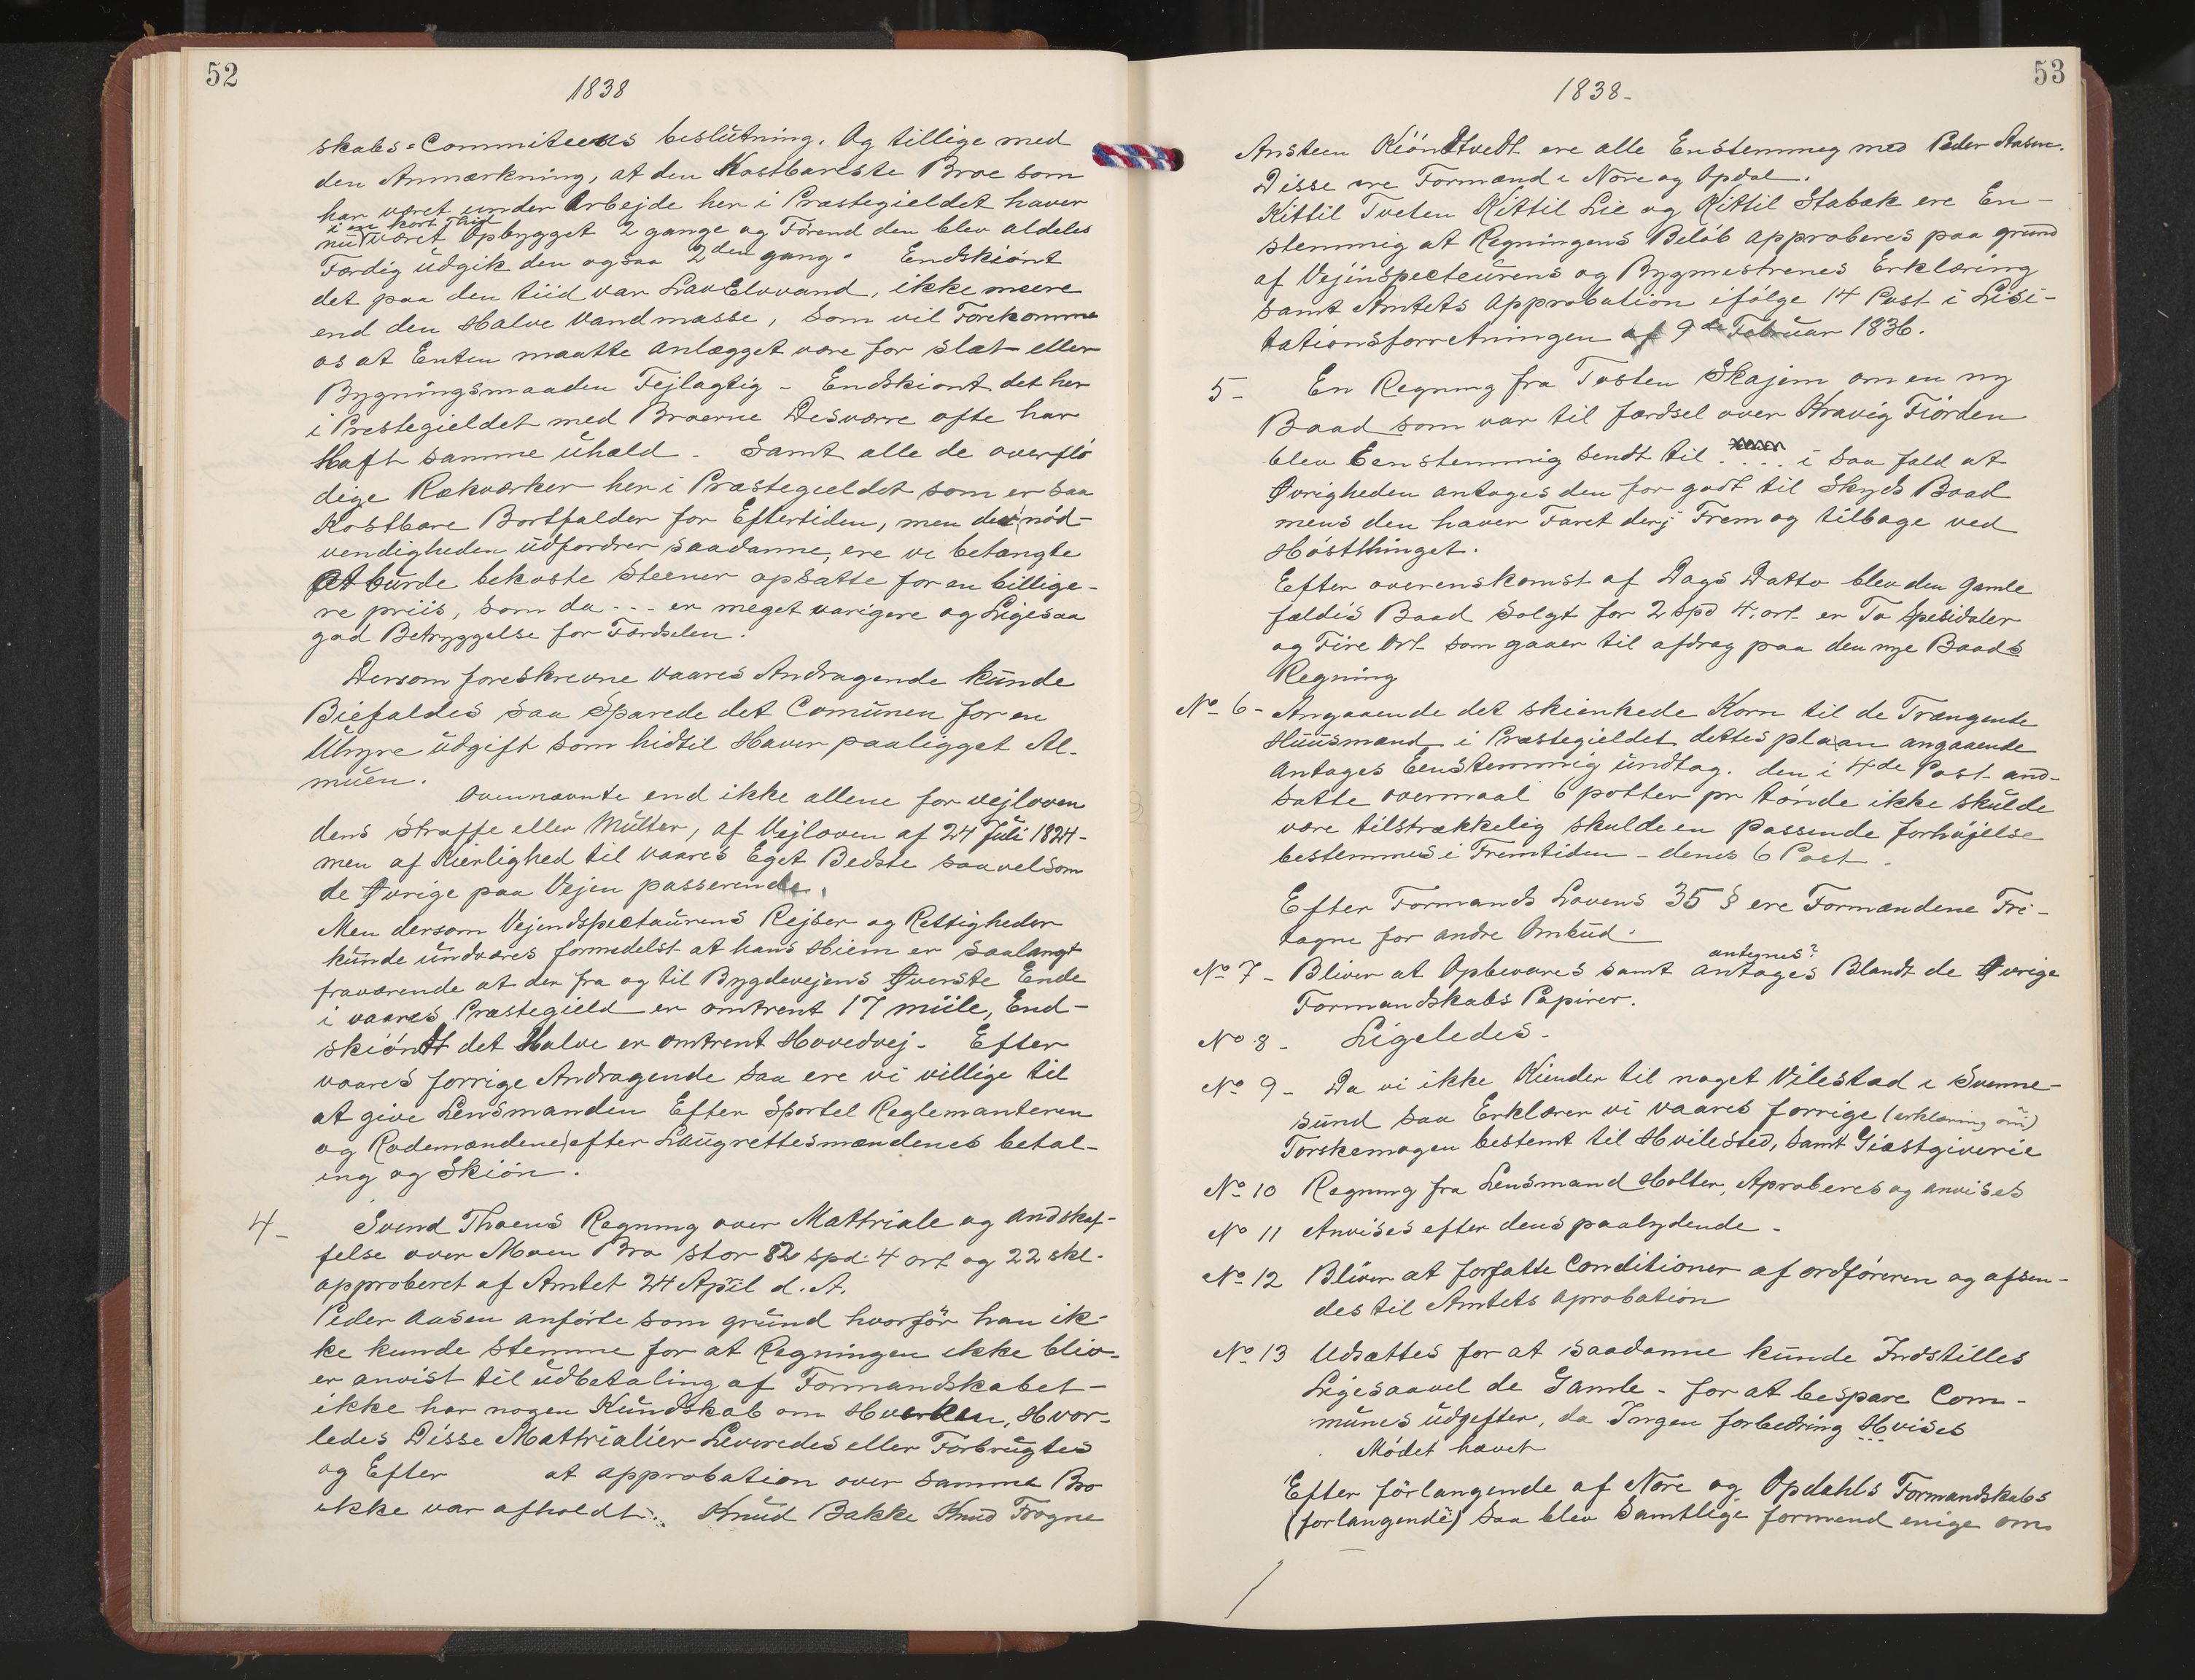 52
1838
skabs=Commiteens beslutning. Og tillige med
den Anmærkning, at den Kostbareste Broe som
har været under Arbejde her i Præstegieldet haver
i en kort Tiid
nu været Opbygget 2 gange og Förend den blev aldeles
Færdig udgik den ogsaa 2den gang. Endskiönt
det paa den tiid var Lav Elvvand, ikke meere
end den Halve Vandmasse, som vil Forekomme
os at Enten maatte anlægget være for slæt eller
Bygningsmaaden Fejlagtig - Endskiönt det her
i Prestegieldet med Broerne Desværre ofte har
Haft samme uhæld. Samt alle de overflö
dige Rækværker her i Præstegieldet som er saa
Kostbare Bortfalder for Eftertiden, men der nöd-
vendigheden udfordrer saadanne, ere vi betængte
at burde bekoste Steener opsatte for en billige-
re priis, som da - - - er meget varigere og Ligesaa
god Betryggelse for Færdselen.
Dersom foreskrevne vaares Andragende kunde
Biefaldes saa Sparede det Comunen for en
Uhyre udgift som hidtil Haver paaligget Al-
muen.
Ovennævnte end ikke allene for vejloven
dens Straffe eller Mulkter, af Vejloven af 24 Juli 1824-
men af Kierlighed til vaares Eget Bedste saavelsom
de Övrige paa Vejen passerende.
Men dersom Vejendspectaurens Rejser og Rettigheder
kunde undværes formedelst at hans Hiem er Saalangt
fraværende at der fra og til Bygdevejens Överste Ende
i vaares Præstegield er omtrent 17 miile, End-
skiöndt det Halve er omtrent Hovedvej. Efter
vaares forrige Andragende saa ere vi villige til
at give Lensmanden Efter Sportel Reglemanteren
og Rodemændene efter Laugrettesmændenes betal-
ing og Skiön.
4- Svend Thoens Regning over Mattriale og andskaf-
felse over Moen Bro stor 82 spd. 4 ort og 22 skl.
approberet af Amtet 24 April d. A.
Peder Aasen anförte som grund hvorför han ik-
ke kunde stemme for at Regningen ikke bliv-
er anvist til udbetaling af Formandskabet-
ikke har nogen Kundskab om Hverken, Hvor-
ledes Disse Mattrialier Leveredes eller Forbrugtes
og Efter at approbation over samme Bro
ikke var afholdt. Knud Bakke Knud Frogne
53
1838-
Ansteen Kiöndtvedt ere alle Enstemmeg med Peder Aasen.
Disse ere Formænd i Nore og Opdal.
Kittil Tveten Kittil Lie og Kittil Stabæk ere En-
stemmig at Regningens Belöb approberes paa grund
af Vejinspecteurens og Bygmestrenes Erklæring
samt Amtets Approbation ifölge 14 Post i Lisi-
tationsforretningen af 9de Februar 1836.
5- En Regning fra Tosten Skajem om en ny
Baad som var til færdsel over Kravig Fiörden
blev Eenstemmig sendt til . . . . i saa fald at
Övrigheden antages den for godt til Skyds Baad
mens den haver Faret derj Frem og tilbage ved
Höstthinget.
Efter overenskomst af Dags Datto blev den Gamle
fældis Baad Solgt for 2 Spd 4. ort er To Spesidaler
og Fire Ort som gaaer til afdrag paa den nye Baads
Regning
No 6- Angaaende det skienkede Korn til de Trængende
Huusmænd i Præstegieldet dettes plaan angaaende
Antages Eenstemmig undtag. den i 4de Post and-
satte overmaal 6 potter pr tönde ikke skulde
være tilstrækkelig skulde en Passende forhöjelse
bestemmes i Fremtiden - denes 6 Post.
Efter Formands Lovens 35 § ere Formændene Fri-
tagne for andre Ombud.
antegnes?
No 7- Bliver at Opbevares samt antages Blandt de Övrige
Formandskabs Papirer.
No 8- Ligeledes-
No 9- Da vi ikke Kiender til noget Vilestad i Svenne-
sund saa Erklærer vi vaares forrige (erklæring om)
Torskemogen bestemt til Hvilested, samt Giæstgiverie
No 10 Regning fra Lensmand Holter, Aproberes og anvises
No 11 Anvises efter dens paalydende-
No 12 Bliver at forfatte Conditioner af ordföreren og afsen-
des til Amtets Aprobation
No 13 Udsættes for at saadanne kunde Indstilles
Ligesaavel de Gamle - for at bespare Com-
munes udgifter, da Ingen forbedring Hvises
Mödet hævet
Efter förlangende af Nore og Opdahls Formandskabs
(forlangende) saa blev Samtlige formend enige om